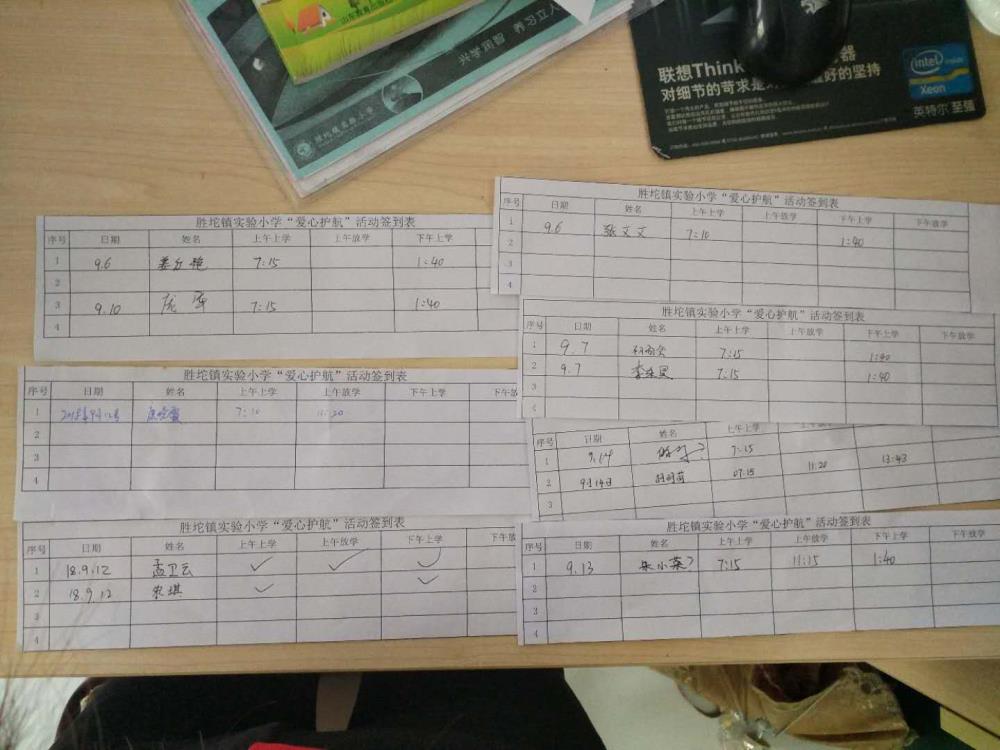 山东教育出版社
兴学润智 养习立人
胜坨镇实验小学
联想Think
对细节的苛求是 好的坚持
intel inside
Xeon
英特尔 至强
胜坨镇实验小学“爱心护航”活动签到表
序号 日期 姓名 上午上学 上午放学 下午上学
1 9.6 7:15 1:40
2
3 9.10 7:15 1:40
4
胜坨镇实验小学“爱心护航”活动签到表
序号 日期 姓名 上午上学 上午放学 下午上学 下午放学
1 9.6 张文文 7:10
2 1:40
3
4
胜坨镇实验小学“爱心护航”活动签到表
序号 日期 姓名 上午上学 上午放学 下午上学 下午放学
1 9.7 7:15 1:40
2 9.7 7:15 1:40
3
胜坨镇实验小学“爱心护航”活动签到表
序号 日期 姓名 上午上学 上午放学 下午上学 下午放
1 2018年9月12号 7:10 11:20
2
3
4
序号 日期 姓名 上午上学
1 9.14 7:15
2 9月14日 07:15 11:20 13:43
3
胜坨镇实验小学“爱心护航”活动签到表
序号 日期 姓名 上午上学 上午放学 下午上学 下午放
1 18.9.12 孟卫云 ✓ ✓ ✓
2 18.9.12 ✓ ✓
3
4
胜坨镇实验小学“爱心护航”活动签到表
序号 日期 姓名 上午上学 上午放学 下午上学 下午放学
1 9.13 7:15 11:15 1:40
2
3
4